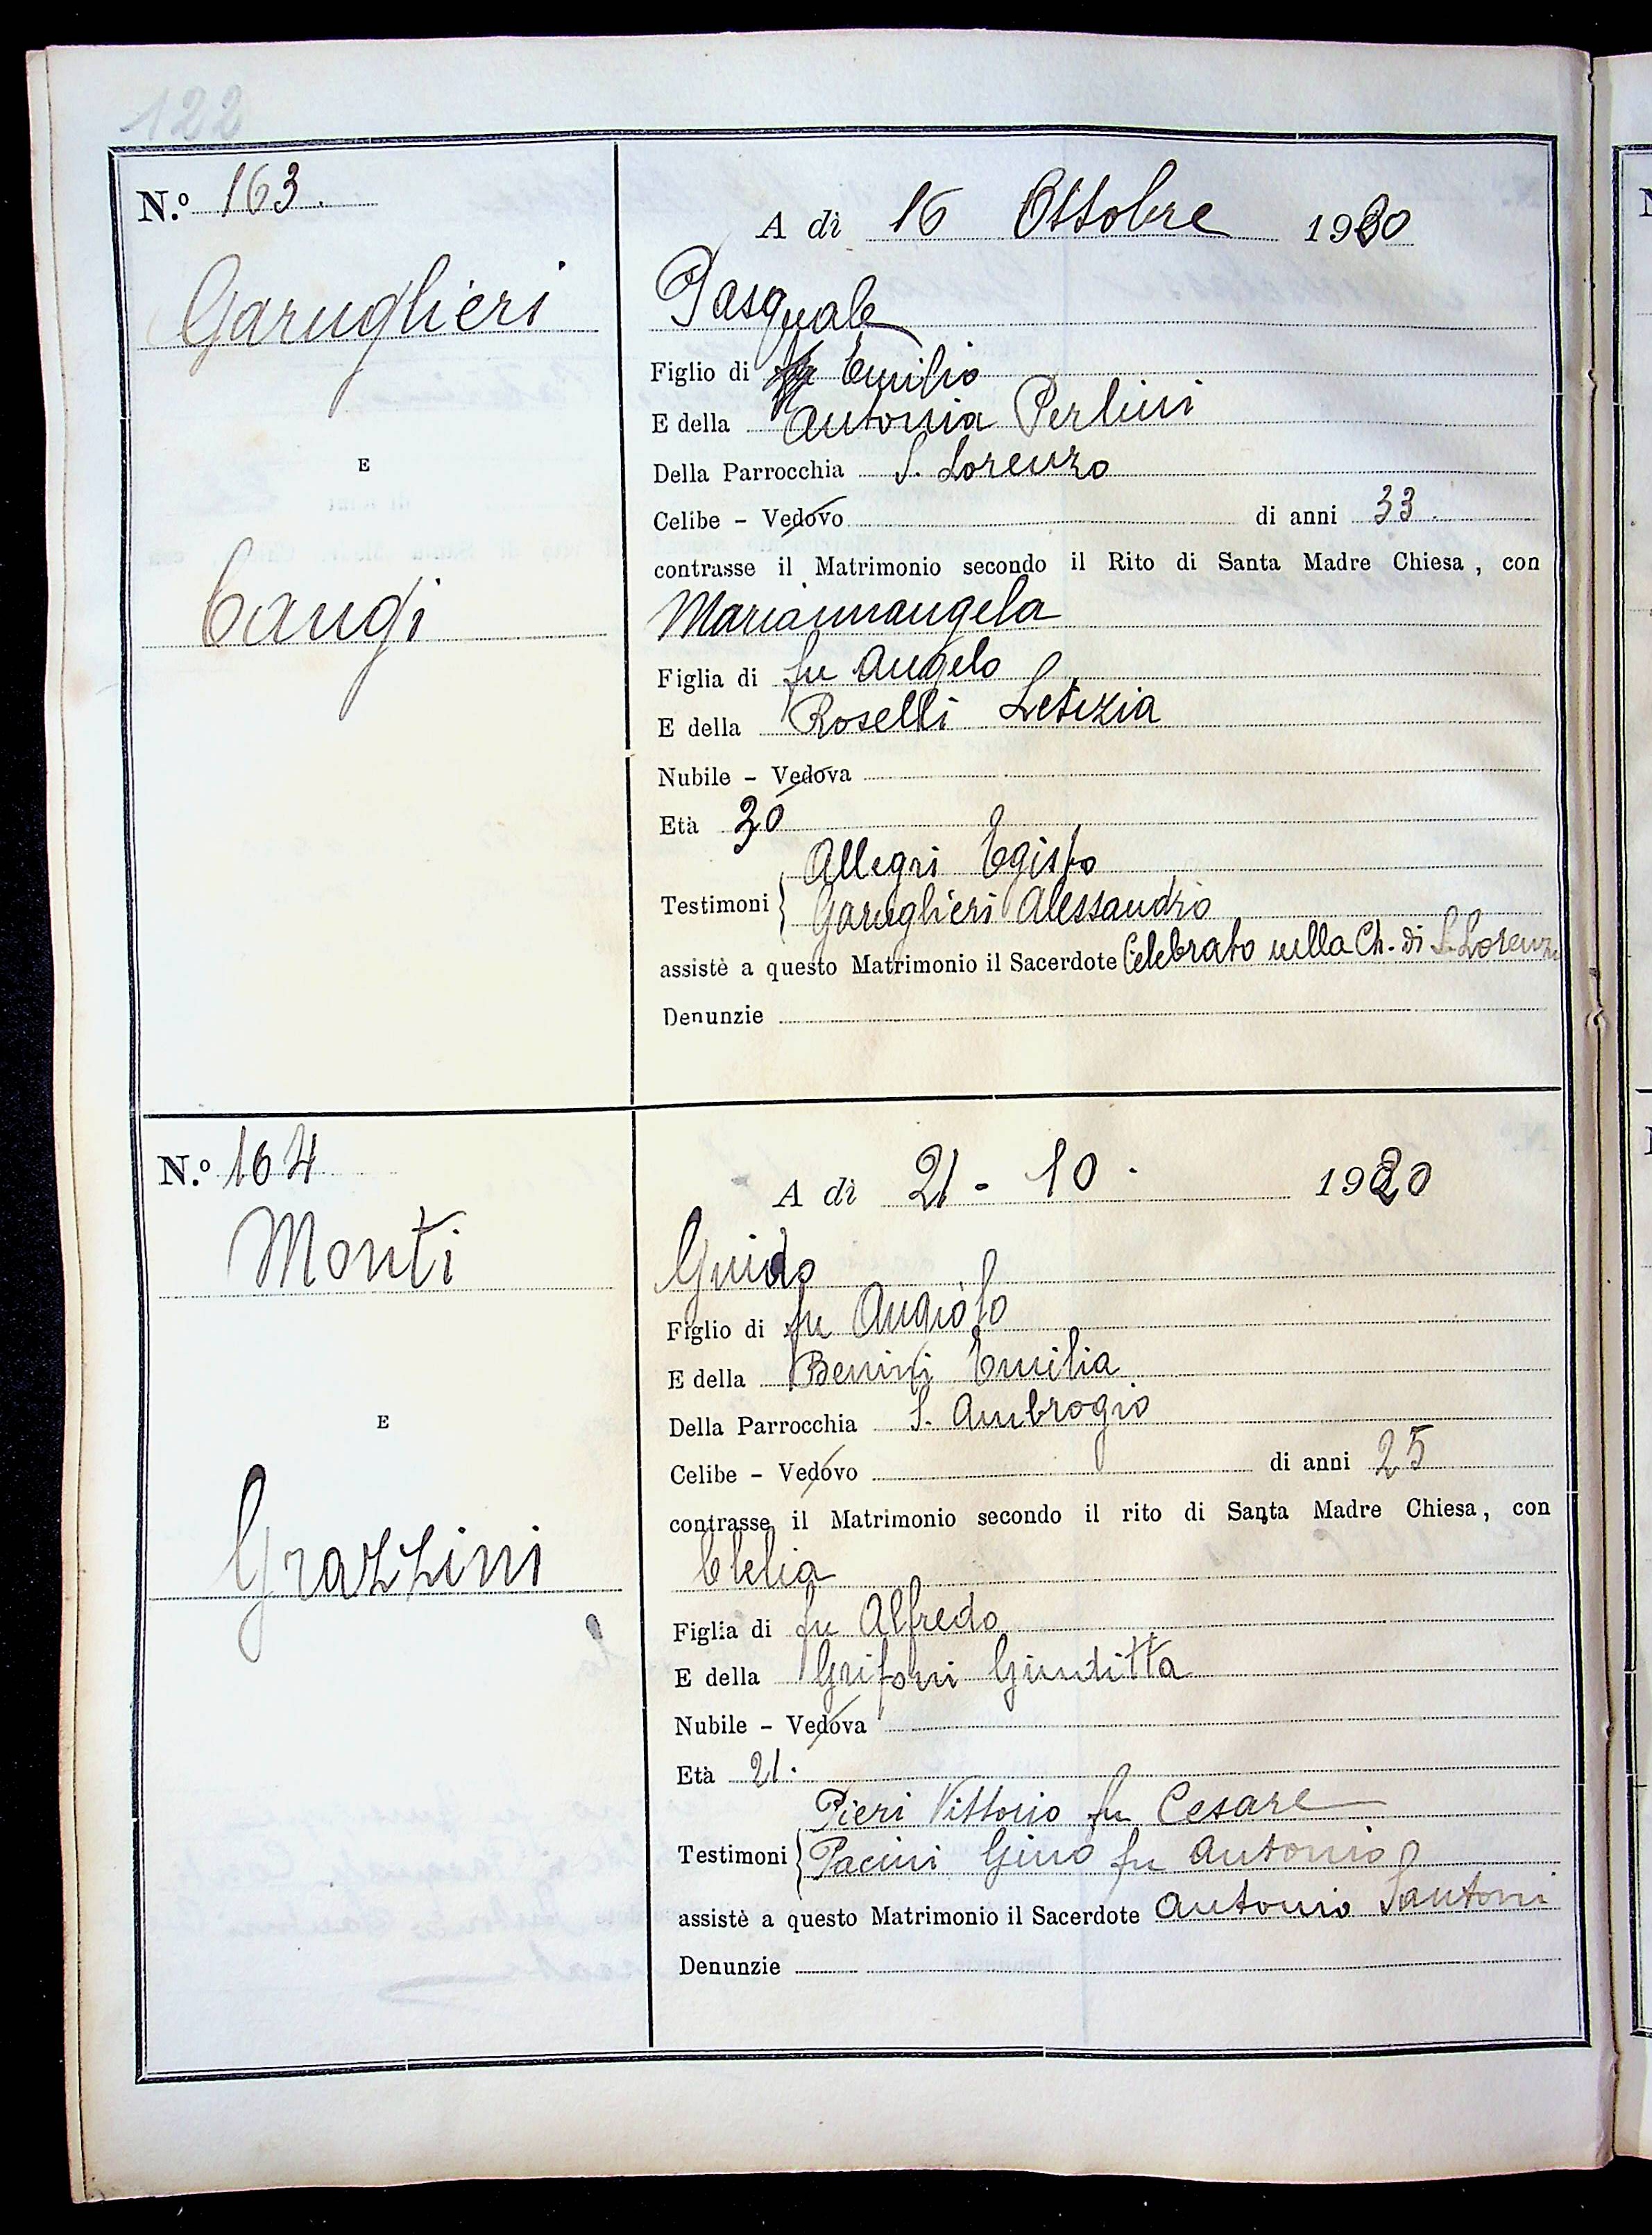 122
N.º 163.
A dì 16 Ottobre 1920
Garuglieri
Pasquale
Figlio di Emilio
E della Antonia Perlini
E
Della Parrocchia S. Lorenzo
Celibe - Vedovo di anni 33.
contrasse il Matrimonio secondo il Rito di Santa Madre Chiesa, con
Cangi
Mariannangela
Figlia di fu Angelo
E della Roselli Letizia
Nubile - Vedova
Età 30
Allegri Egisto
Testimoni Garuglieri Alessandro
assistè a questo Matrimonio il Sacerdote Celebrato nella Ch. di S. Lorenzo
Denunzie
N.º 164
A dì 21 - 10 - 1920
Monti
Guido
Figlio di fu Angiolo
E della Benini Emilia
E
Della Parrocchia S. Ambrogio
Celibe - Vedovo di anni 25
contrasse il Matrimonio secondo il rito di Santa Madre Chiesa, con
Grazzini
Clelia
Figlia di fu Alfredo
E della Grifoni Giuditta
Nubile - Vedova
Età 21.
Pieri Vittorio fu Cesare
Testimoni Pacini Gino fu Antonio
assistè a questo Matrimonio il Sacerdote Antonio Santoni
Denunzie